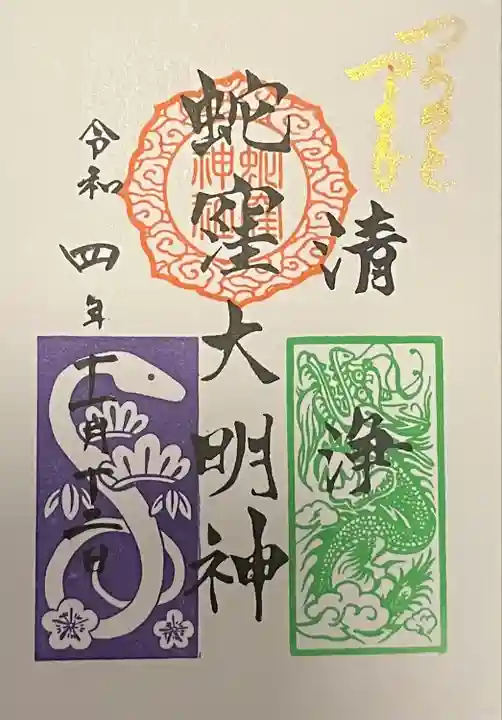 清浄
蛇窪大明神
蛇窪神社
令和四年十一月十三日